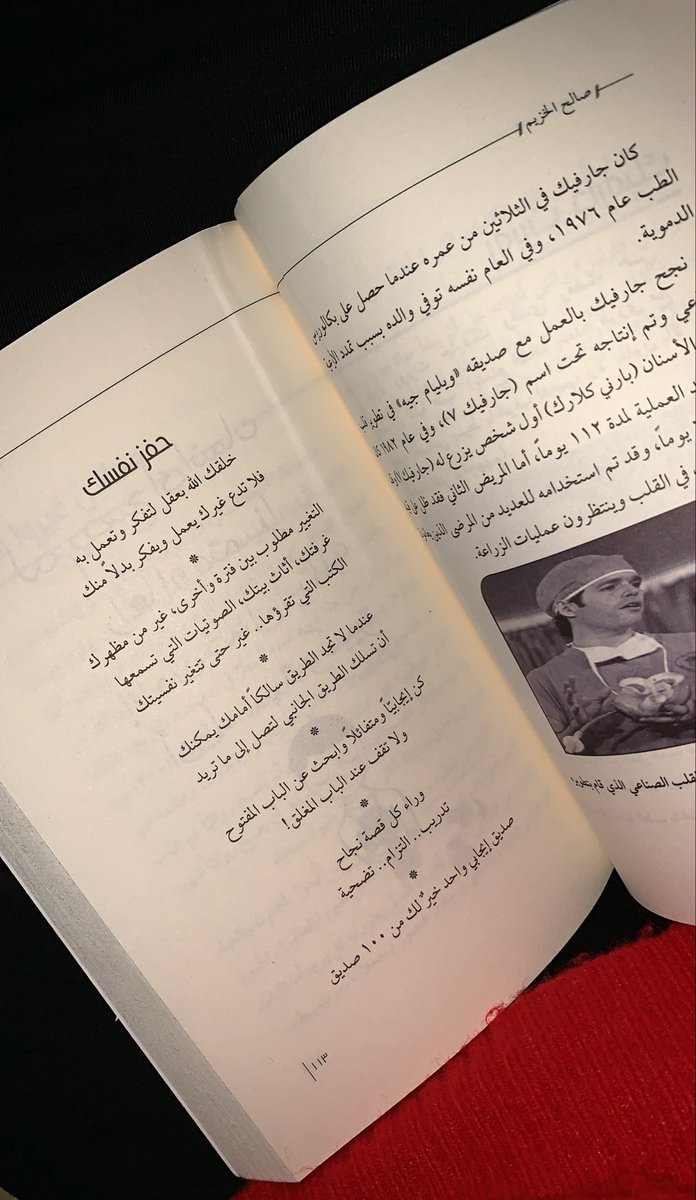 صالح الخزيم
كان جارفيك في الثلاثين من عمره عندما حصل على بكالوريوس
الطب عام ١٩٧٦، وفي العام نفسه توفي والده بسبب تمدد الأوعية
الدموية.
نجح جارفيك بالعمل مع صديقه «ويليام جيه» في تطوير
وتم إنتاجه تحت اسم (جارفيك ٧)، وفي عام ١٩٨٢
الأسنان (بارني كلارك) أول شخص يزرع له (جارفيك ٧)
العملية لمدة ١١٢ يوماً، أما المريض الثاني فقد ظل
يوماً، وقد تم استخدامه للعديد من المرضى الذين
في القلب وينتظرون عمليات الزراعة.
القلب الصناعي الذي قام بتطويره
حفز نفسك
خلقك الله بعقل لتفكر وتعمل به
فلا تدع غيرك يعمل ويفكر بدلاً منك
*
التغيير مطلوب بين فترة وأخرى، غير من مظهرك
غرفتك، أثاث بيتك، الصوتيات التي تسمعها
الكتب التي تقرؤها.. غير حتى تتغير نفسيتك
*
عندما لا تجد الطريق سالكاً أمامك يمكنك
أن تسلك الطريق الجانبي لتصل إلى ما تريد
*
كن إيجابيّاً ومتفائلاً وابحث عن الباب المفتوح
ولا تقف عند الباب المغلق!
*
وراء كل قصة نجاح
تدريب.. التزام.. تضحية
*
صديق إيجابي واحد خيرٌ لك من ١٠٠ صديق
١١٣